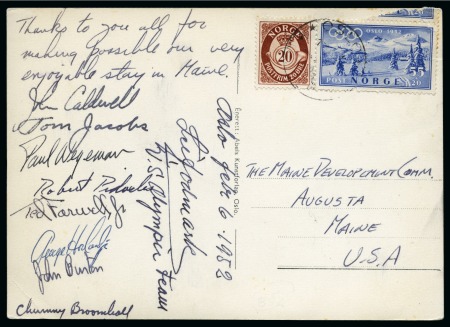 Thanks to you all for
making possible our very
enjoyable stay in Maine.
John Caldwell
Tom Jacobs
Paul Wegeman
Robert Pidacks
Ted Farwell Jr.
George Hovland
John Burton
Chummy Broomhall
Oslo Feb 6 - 1952
Lidodmark
U.S. Olympic team
Eneret: Abels Kunstforlag, Oslo.
NORGE
20
POSTFRIM
OSLO 1952
55
+20
POST NORGE
THE MAINE DEVELOPMENT COMM.
AUGUSTA
MAINE
U.S.A